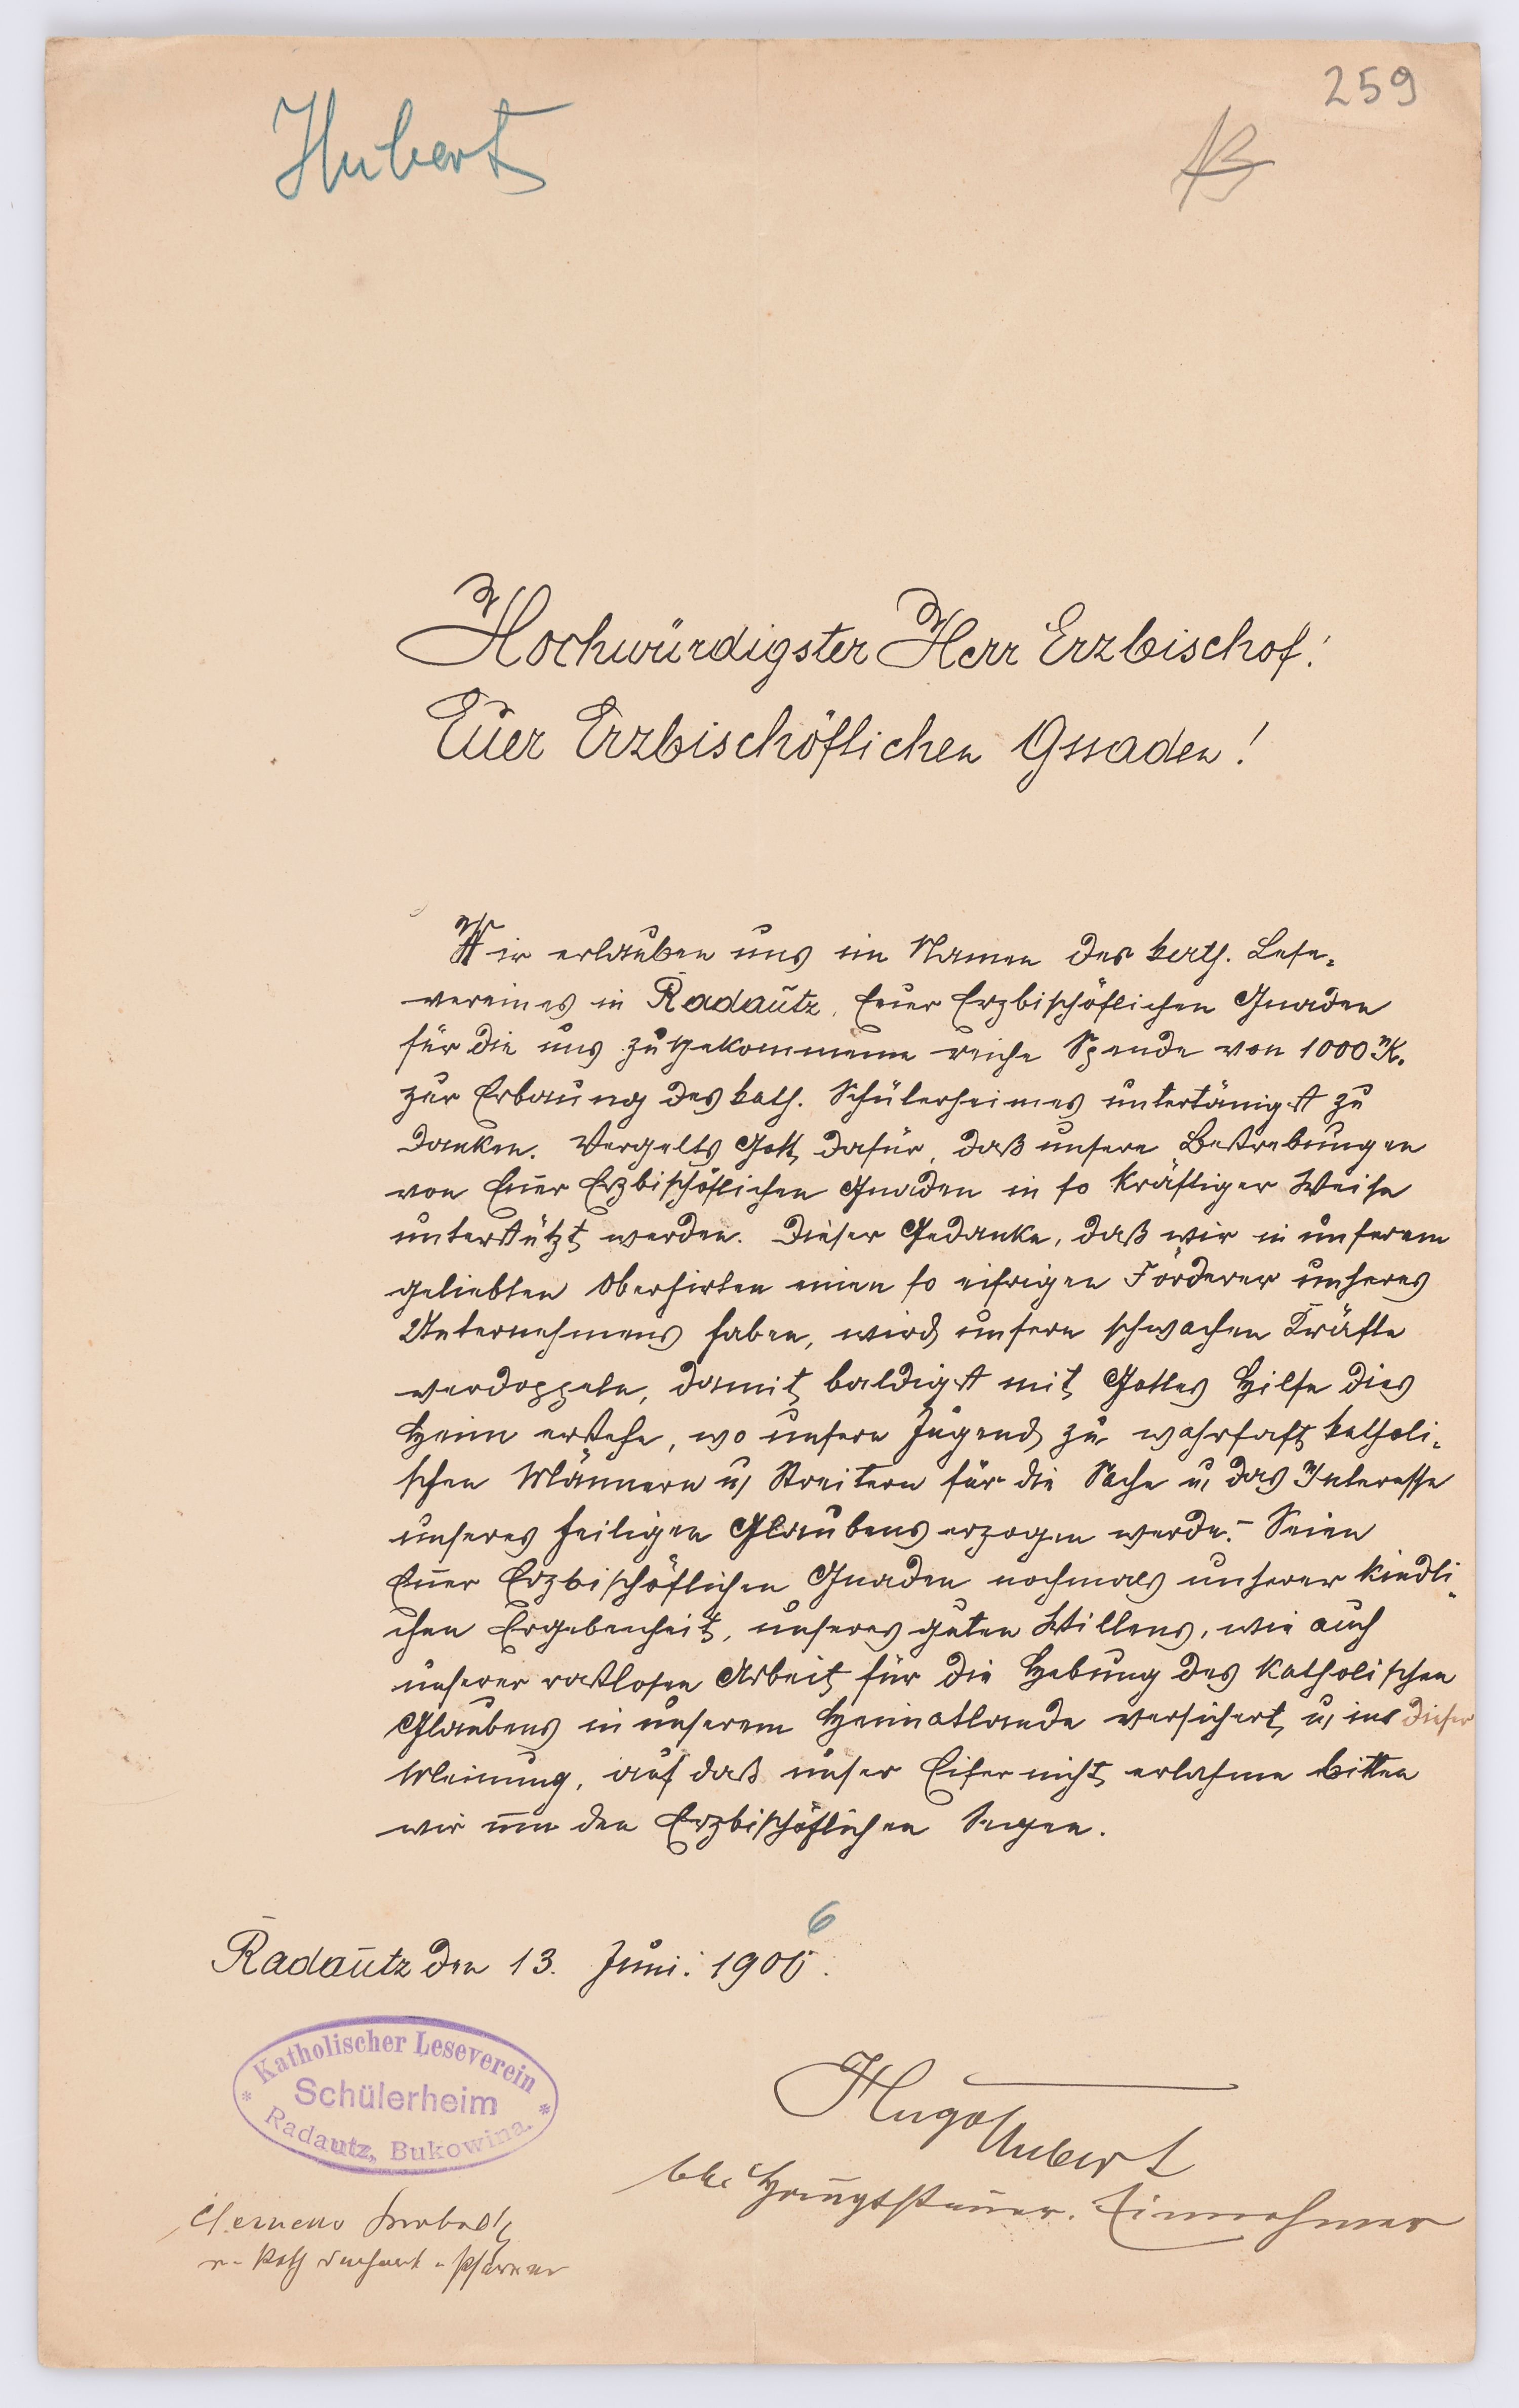 259
Hubert
Hochwürdigster Herr Erzbischof!
Euer Erzbischöflichen Gnaden!
Wir erlauben uns im Namen des kath. Lese-
vereines in Radautz, Euer Erzbischöflichen Gnaden
für die uns zugekommene reiche Spende von 1000 K.
zur Erbauung des kath. Schülerheimes untertänigst zu
danken. Vergelts Gott dafür, daß unsere Bestrebungen
von Euer Erzbischöflichen Gnaden in so kräftiger Weise
unterstützt werden. Dieser Gedanke, daß wir in unserem
geliebten Oberhirten einen so eifrigen Förderer unseres
Unternehmens haben, wird unsere schwachen Kräfte
verdoppeln, damit baldigst mit Gottes Hilfe dies
Heim erstehe, wo unsere Jugend zu wahrhaft katholi-
schen Männern u. Streitern für die Sache u. das Interesse
unseres heiligen Glaubens erzogen werde. – Seien
Euer Erzbischöflichen Gnaden nochmals unserer kindli-
chen Ergebenheit, unseres guten Willens, wie auch
unserer rastlosen Arbeit für die Hebung des katholischen
Glaubens in unserem Heimatlande versichert, u. in dieser
Meinung, auf daß unser Eifer nicht erlahme bitten
wir um den Erzbischöflichen Segen.
6
Radautz den 13. Juni. 1906.
* Katholischer Leseverein *
Schülerheim
Radautz, Bukowina.
Hugo Hubert
Hauptsteuer-Einnehmer
Clemens
r. kath Pfarrer